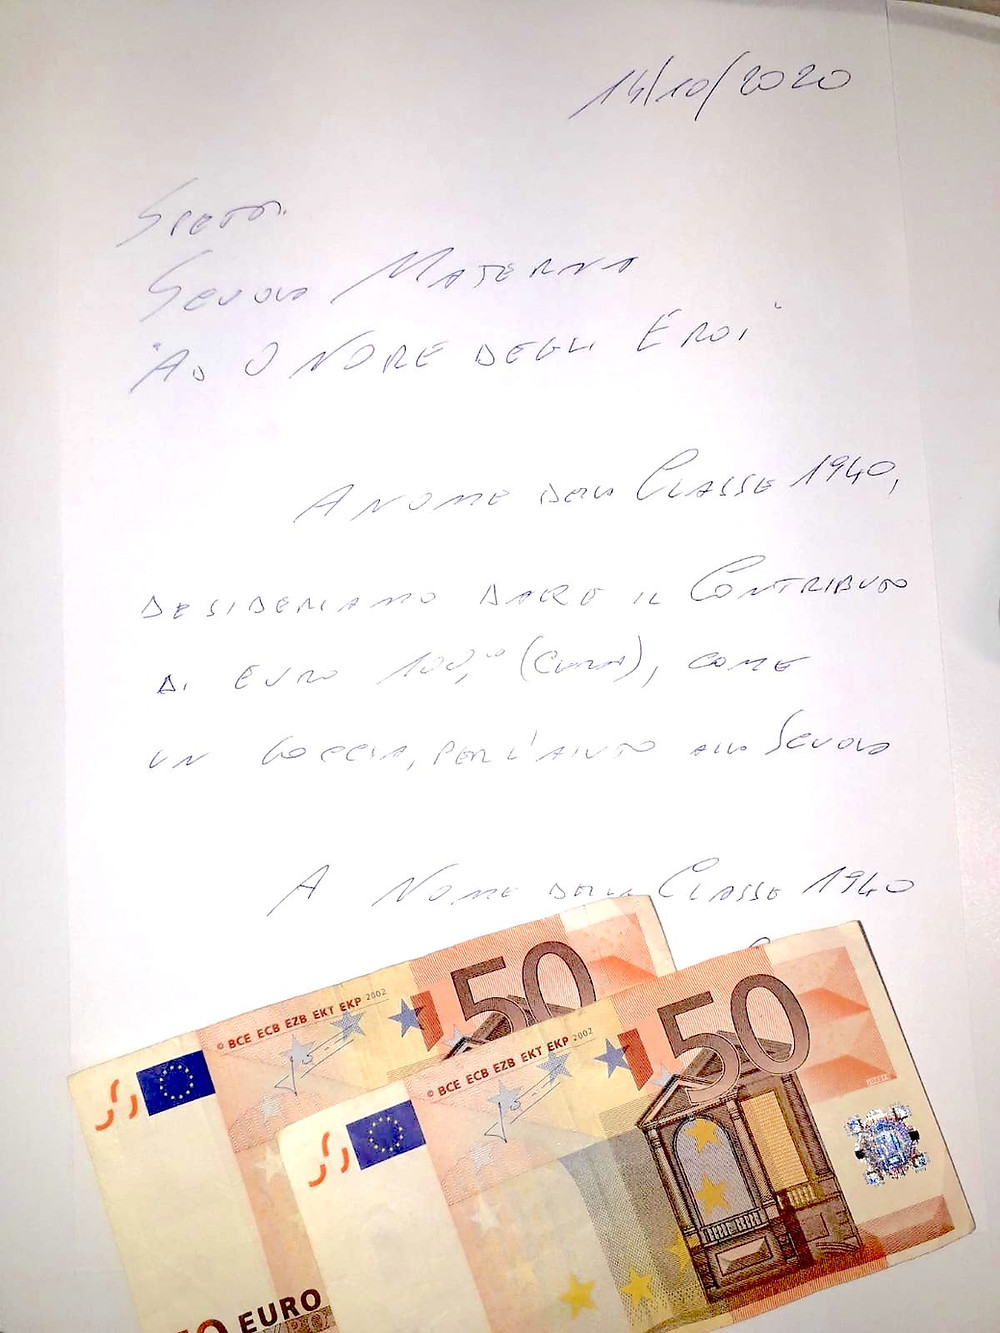 14/10/2020
Spett.
Scuola Materna
"Ad Onore degli Eroi"
A nome della Classe 1940,
desideriamo dare il Contributo
di Euro 100,00 (Cento), come
un goccia, per l'aiuto alla Scuola
A Nome della Classe 1940
50
© BCE ECB EZB EKT EKP 2002
50
© BCE ECB EZB EKT EKP 2002
EURO